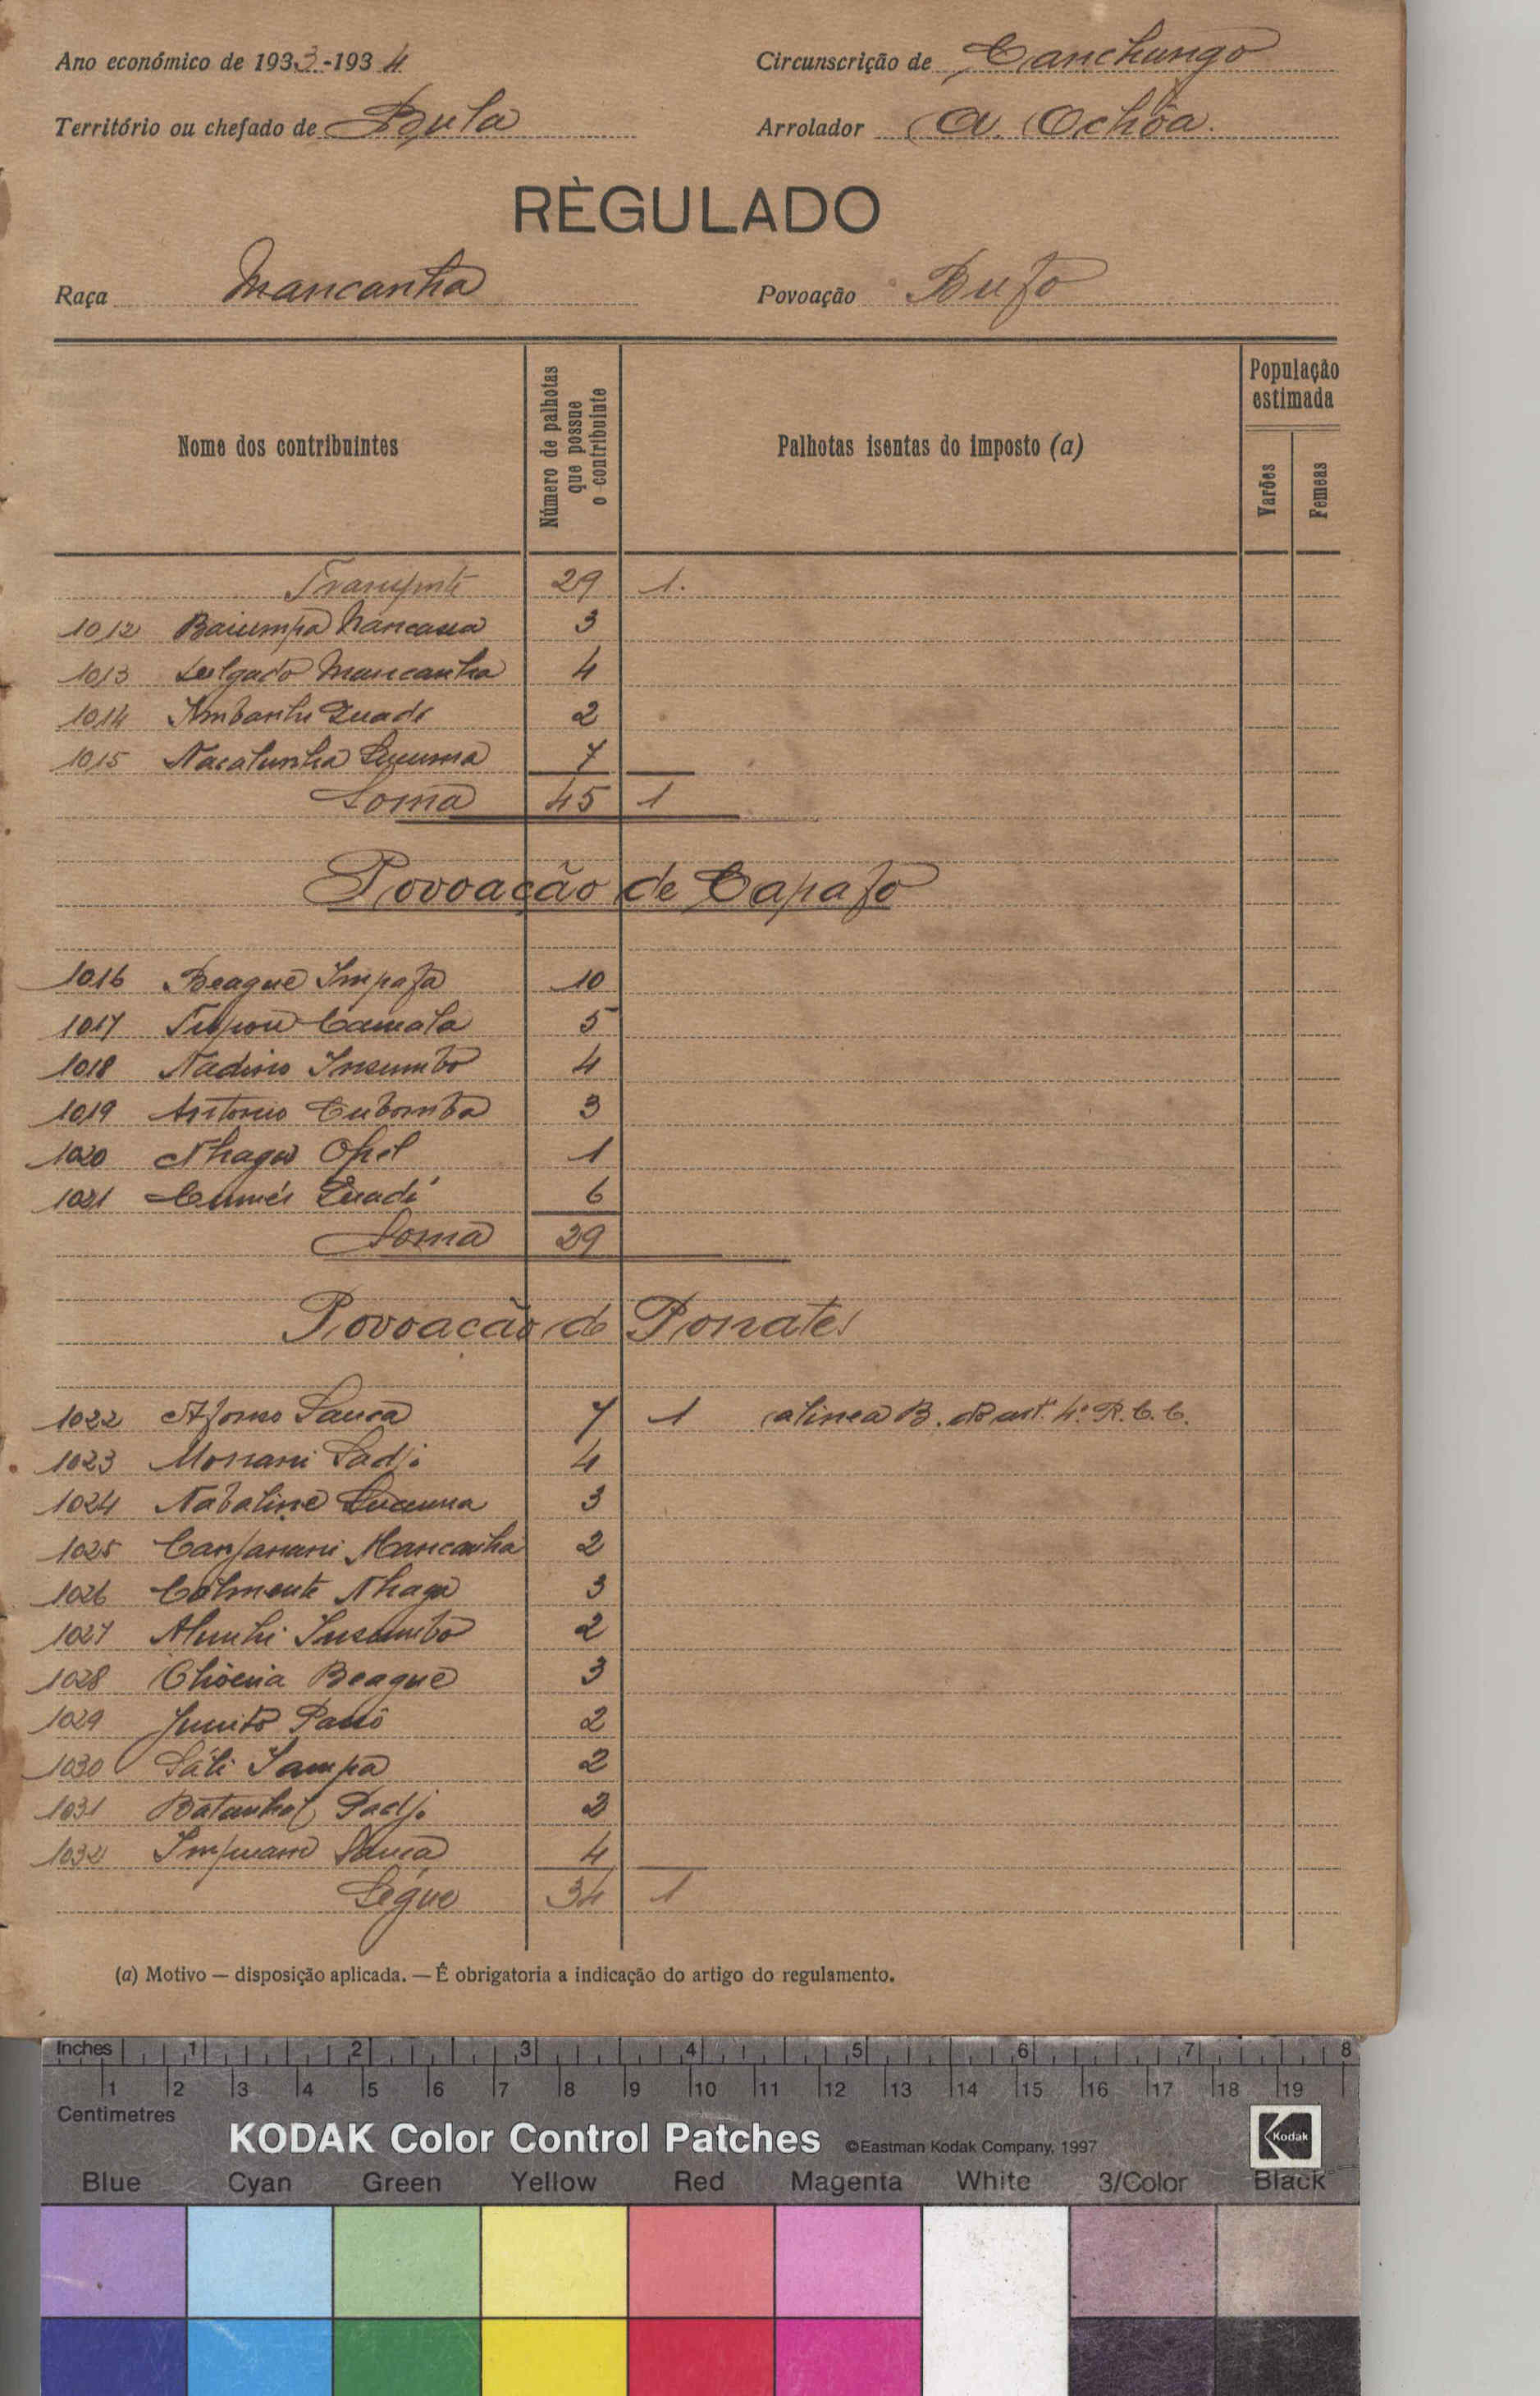 Ano económico de 1933-1934 Circunscrição de Canchungo
Território ou chefado de Bula Arrolador A. Ochôa.
RÈGULADO
Raça Mancanha Povoação Bufo
Nome dos contribuintes
Número de palhotas
que possue
o contribuinte
Palhotas isentas do imposto (a)
População
estimada
Varões
Femeas
Transporte 29 1.
1012 Baiumpa 3
1013 Delgado Mancanha 4
1014 2
1015 7
Soma 45 1
Povoação de Capafo
1016 Beague Impafa 10
1017 Camala 5
1018 Nadino Insumbo 4
1019 Antonio 3
1020 Nhaga Opil 1
1021 6
Soma 29
Povoacão de Ponates
1022 Afonso Sanca 7 1 alinea B. do art.º 4.º R.C.C.
1023 Monani Sadji 4
1024 Nabaline 3
1025 Canjanani Mancanha 2
1026 Nhaga 3
1027 Insumbo 2
1028 Beague 3
1029 2
1030 Sáli Sampa 2
1031 Padji 2
1032 4
Segue 34 1
(a) Motivo — disposição aplicada. — É obrigatoria a indicação do artigo do regulamento.
Inches 1 2 3 4 5 6 7 8
1 2 3 4 5 6 7 8 9 10 11 12 13 14 15 16 17 18 19
Centimetres
KODAK Color Control Patches ©Eastman Kodak Company, 1997 Kodak
Blue Cyan Green Yellow Red Magenta White 3/Color Black